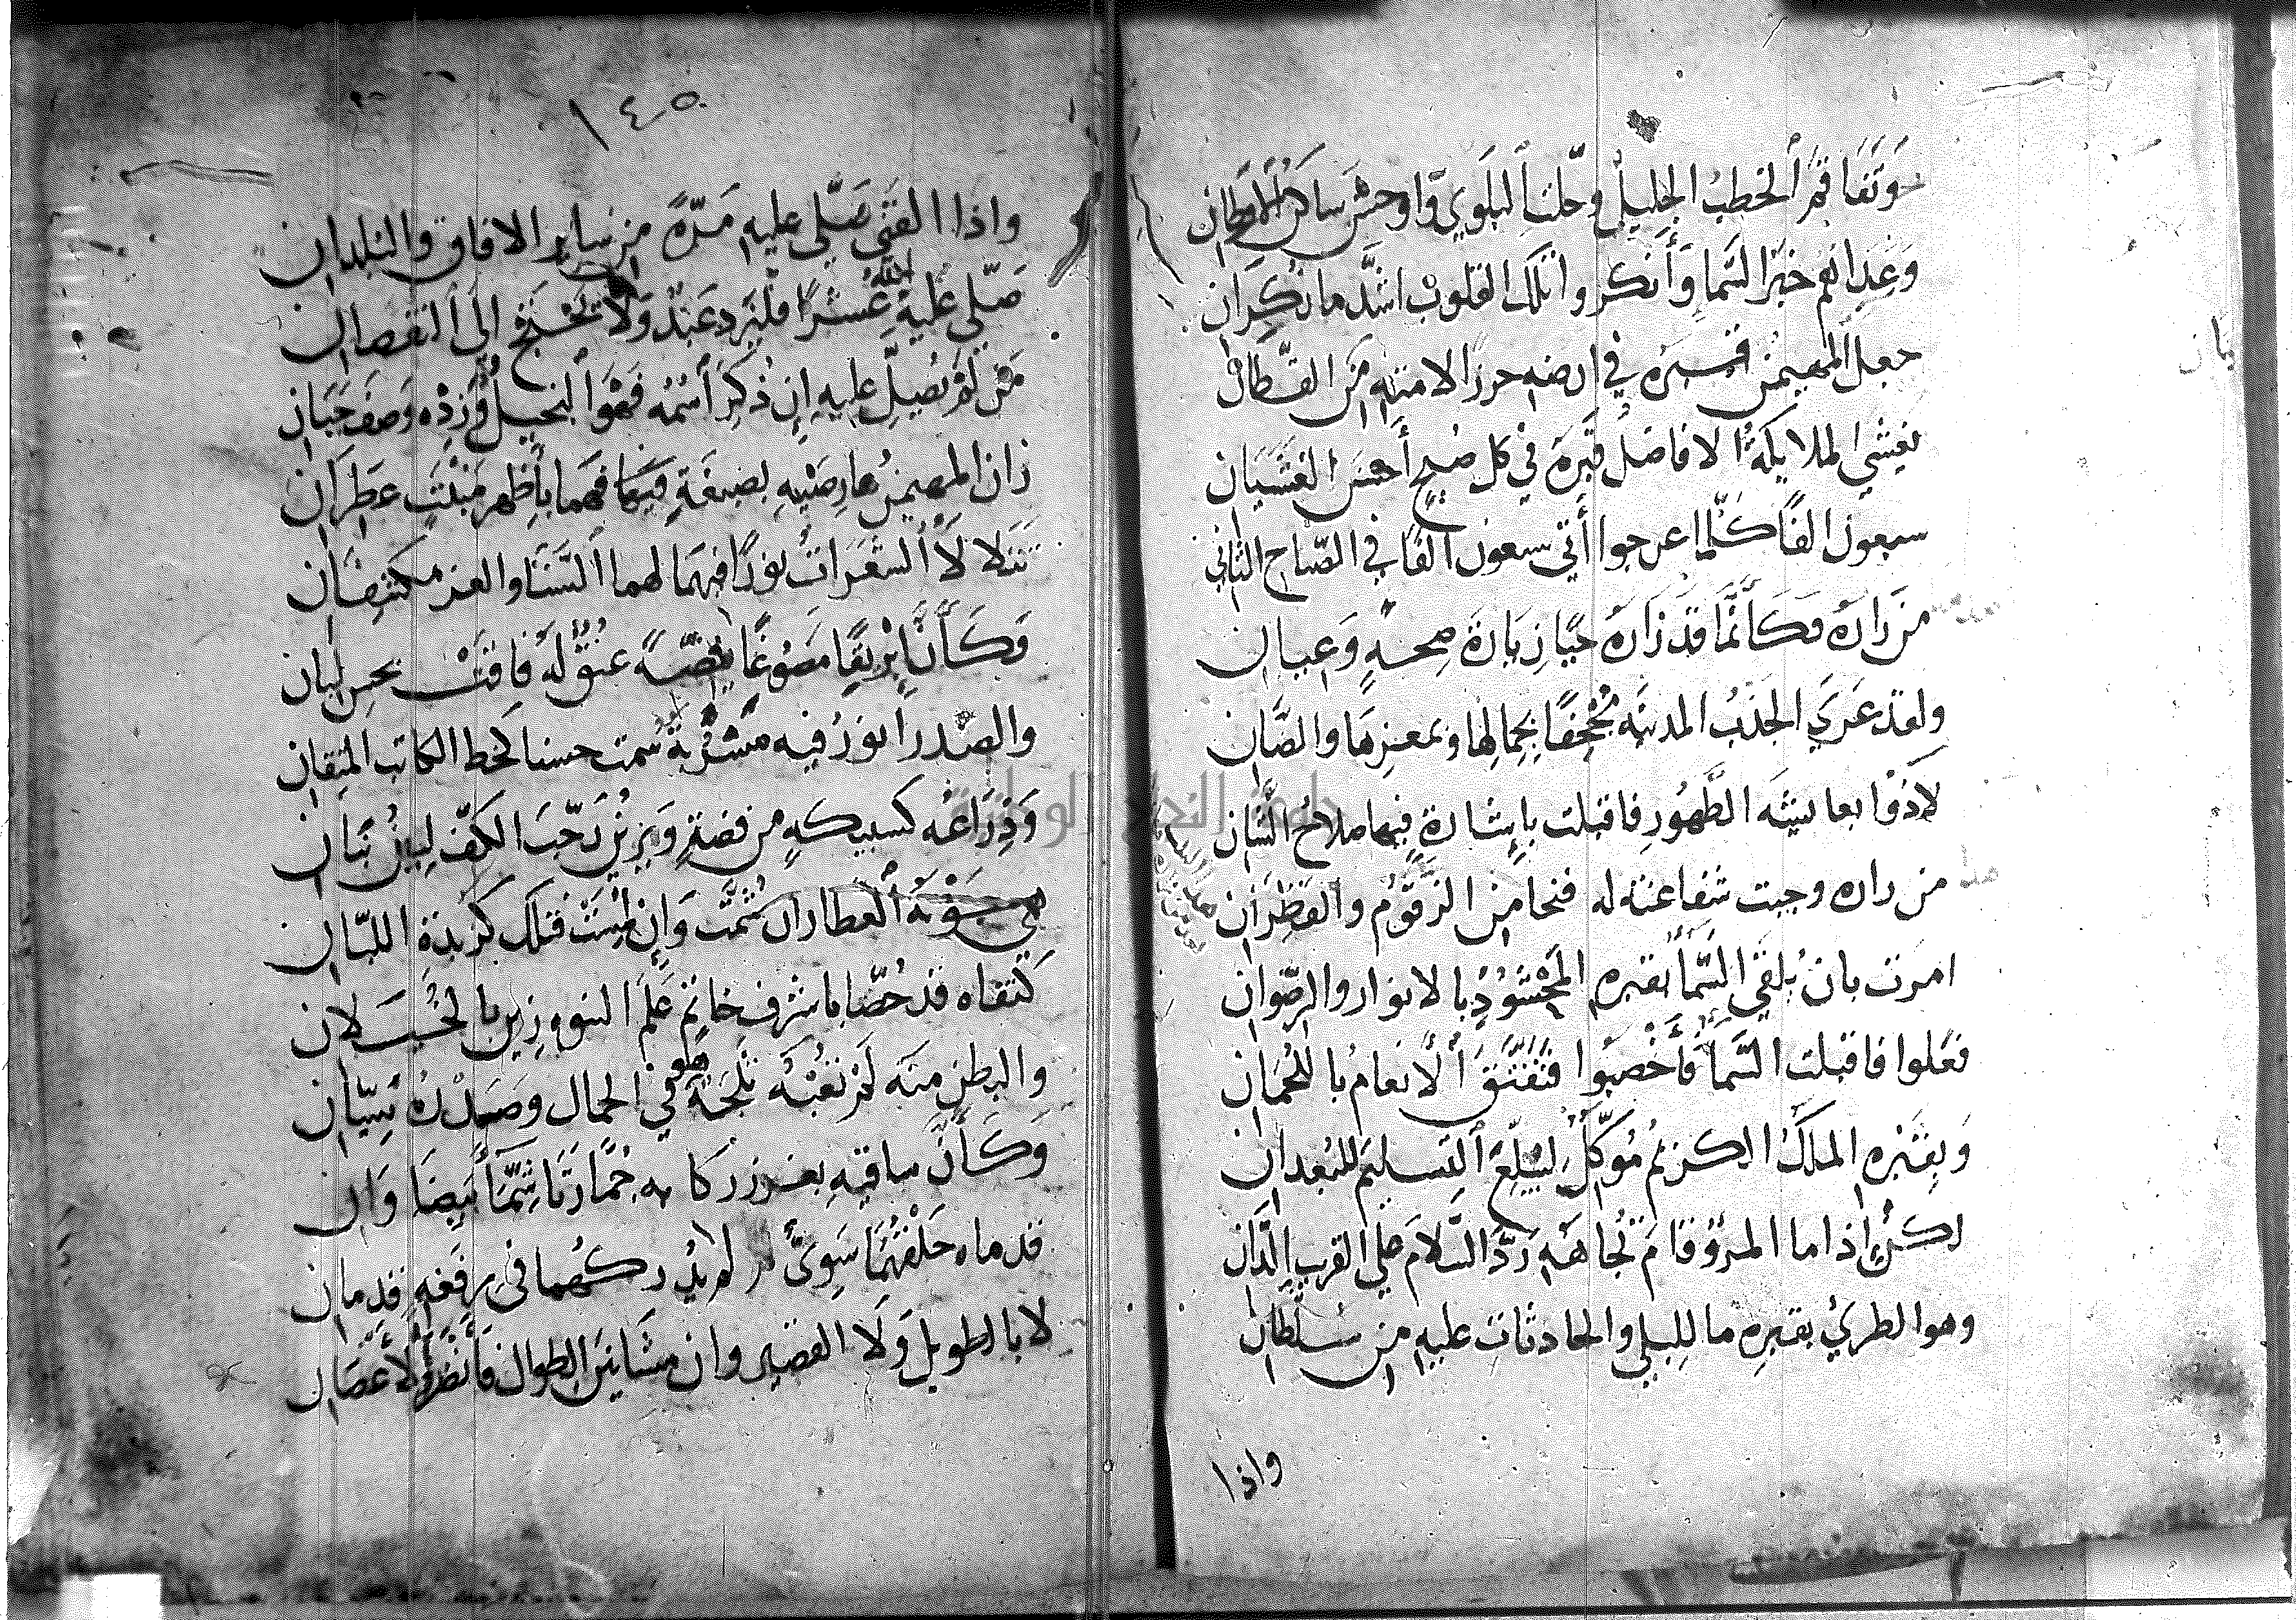 وتفاقم الخطب الجليل وحلت البلوي واوحش ساكن الاوطان
وغدا لهم خبر السما وأنكروا تلك القلوب اشد ما نكران
جعل المهيمن قبره في ارضه حرزا لامته من
يغشي الملايكة الافاضل قبره في كل صبح أحسن الغشيان
سبعون الفا كلما عرجوا أتي سبعون الفا في الصباح الثاني
من زاره فكأنما قد زاره حيا زيارة صحة وعيان
ولقد عري الجدب المدينة مجحفا بجمالها وبمعزها والضان
لاذوا بعايشه الطهور فاقبلت بإشارة فيها صلاح الشان
من زاره وجبت شفاعته له فنجا من الزقوم والقطران
امرت بان يلقي السما بقبره المحشود بالانوار والرضوان
فعلوا فاقبلت السما فأخصبوا فتفتق الأنعام باللحمان
وبقبره الملك الكريم موكل ليبلغ التسليم للبعدان
لكن إذا ما المرؤ قام تجاهه رد السلام علي القريب الدان
وهو الطري بقبره ما للبلي والحادثات عليه من سلطان
واذا
١٤٥
واذا الفتي صلي عليه مرة من ساير الافاق والبلدان
صلي عليه الله عشرا فليزد عبد ولا يجنح الي النقصان
من لم يصل عليه إن ذكر أسمه فهو البخيل وزده وصف جبان
زان المهيمن عارضيه بصبغة فيها فهما بأظهر منبت عطران
تتلالأ الشعرات نورا فيهما لهما السنا والعز مكتنفان
وكأن إبريقا مصوغا فضة عنق له فاقت بحسن ليان
والصدر انور فيه مسربة سمت حسنا كخط الكاتب المتقان
وذراعه كسبيكه من فضة ويزين رحب الكف لين بنان
هي جونة العطار ان شمت وإن لمست فتلك كزبدة اللبان
كتفاه قد خصا باشرف خاتم علم النبوة زين بالخيلان
والبطن منه لم تعبه ثجلة هو في الجمال وصدره سيان
وكأن ساقيه بغرز ركابه جمارتا شماء بيضاوان
قدماه خلقهما سوي لم يدركهما في رفعه قدمان
لا بالطويل ولا القصير وان مشا بين الطوال فأنضر الأغصان